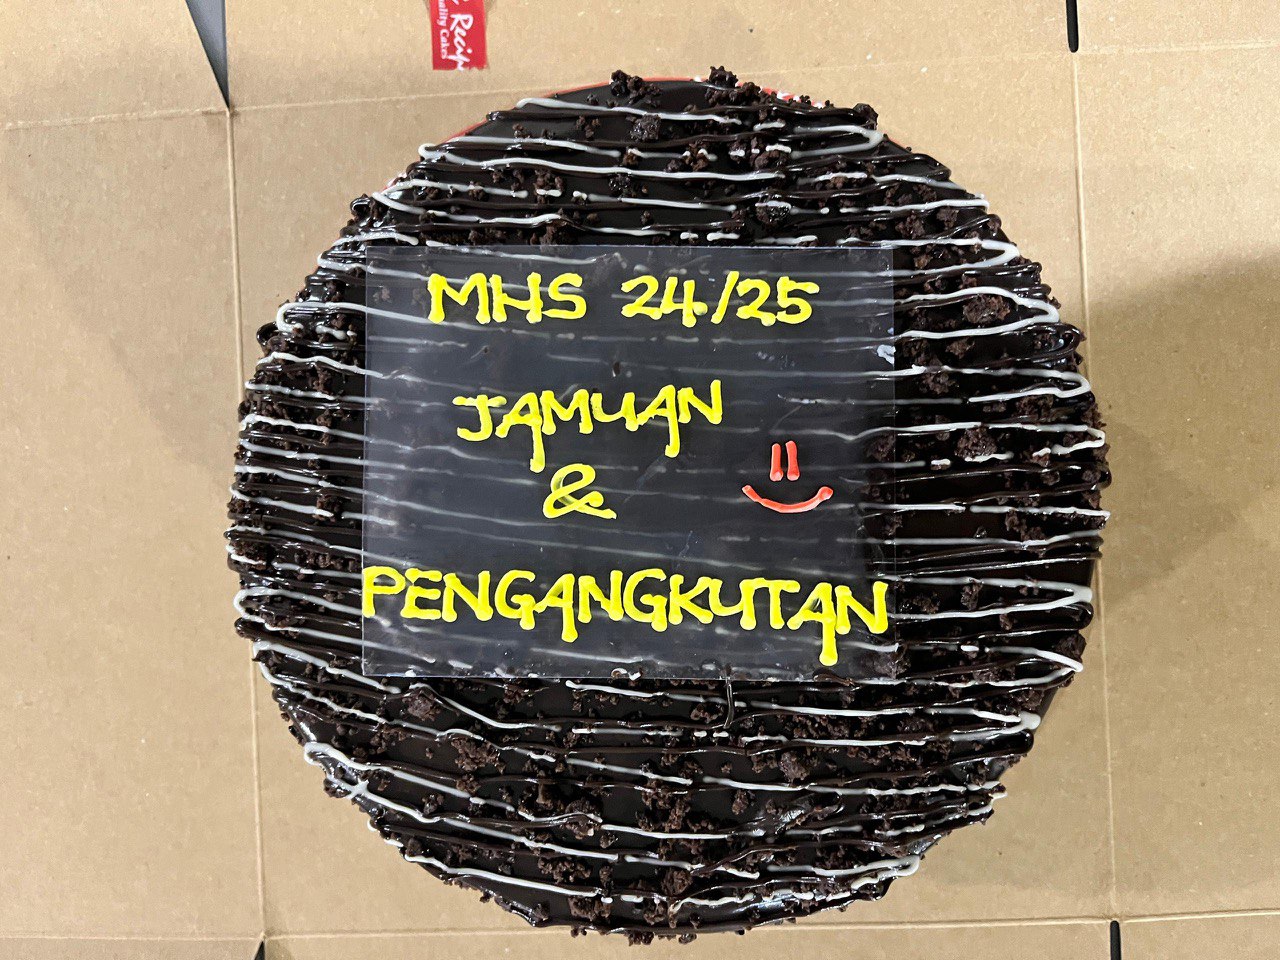 Recip
ality Cakes
MHS 24/25
JAMUAN
&
PENGANGKUTAN